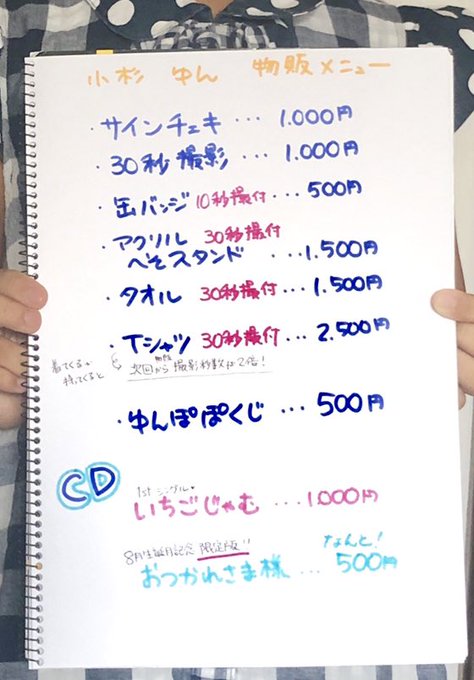 小杉 ゆん 物販メニュー
・サインチェキ … 1.000円
・30秒撮影 … 1.000円
・缶バッジ 10秒撮付 … 500円
・アクリル 30秒撮付
へそスタンド … 1.500円
・タオル 30秒撮付 … 1.500円
・Tシャツ 30秒撮付 … 2.500円
着てくるか
持ってくると
次回から 撮影秒数は2倍!
・ゆんぽぽくじ … 500円
CD
1st シングル♥
いちごじゃむ … 1.000円
8月生誕月記念 限定版!!
なんと!
おつかれさま様 … 500円